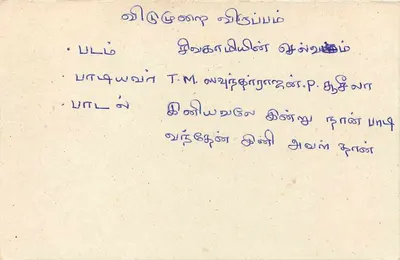 விடுமுறை விருப்பம்
• படம் சிவகாமியின் செல்வம்
• பாடியவர் T.M. லவுந்தர்ராஜன். P. சுசீலா
• பாடல் இனியவளே இன்று நான் பாடி
வந்தேன் இனி அவள் தான்